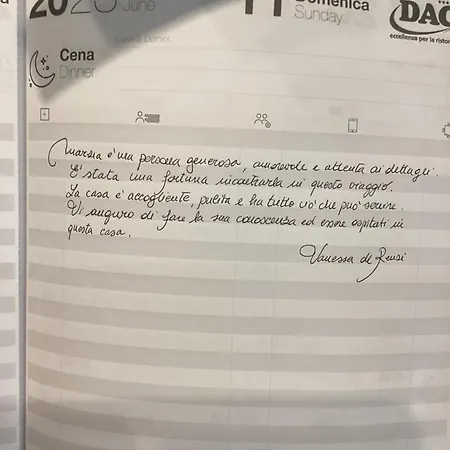 2023 June
11 Domenica
Sunday
DAC
eccellenza per la ristor
Cena
Dinner
Marzia è una persona generosa, amorevole e attenta ai dettagli.
E' stata una fortuna incontrarla in questo viaggio.
La casa è accogliente, pulita e ha tutto ciò che può servire.
Vi auguro di fare la sua conoscenza ed essere ospitati in
questa casa.
Vanessa de